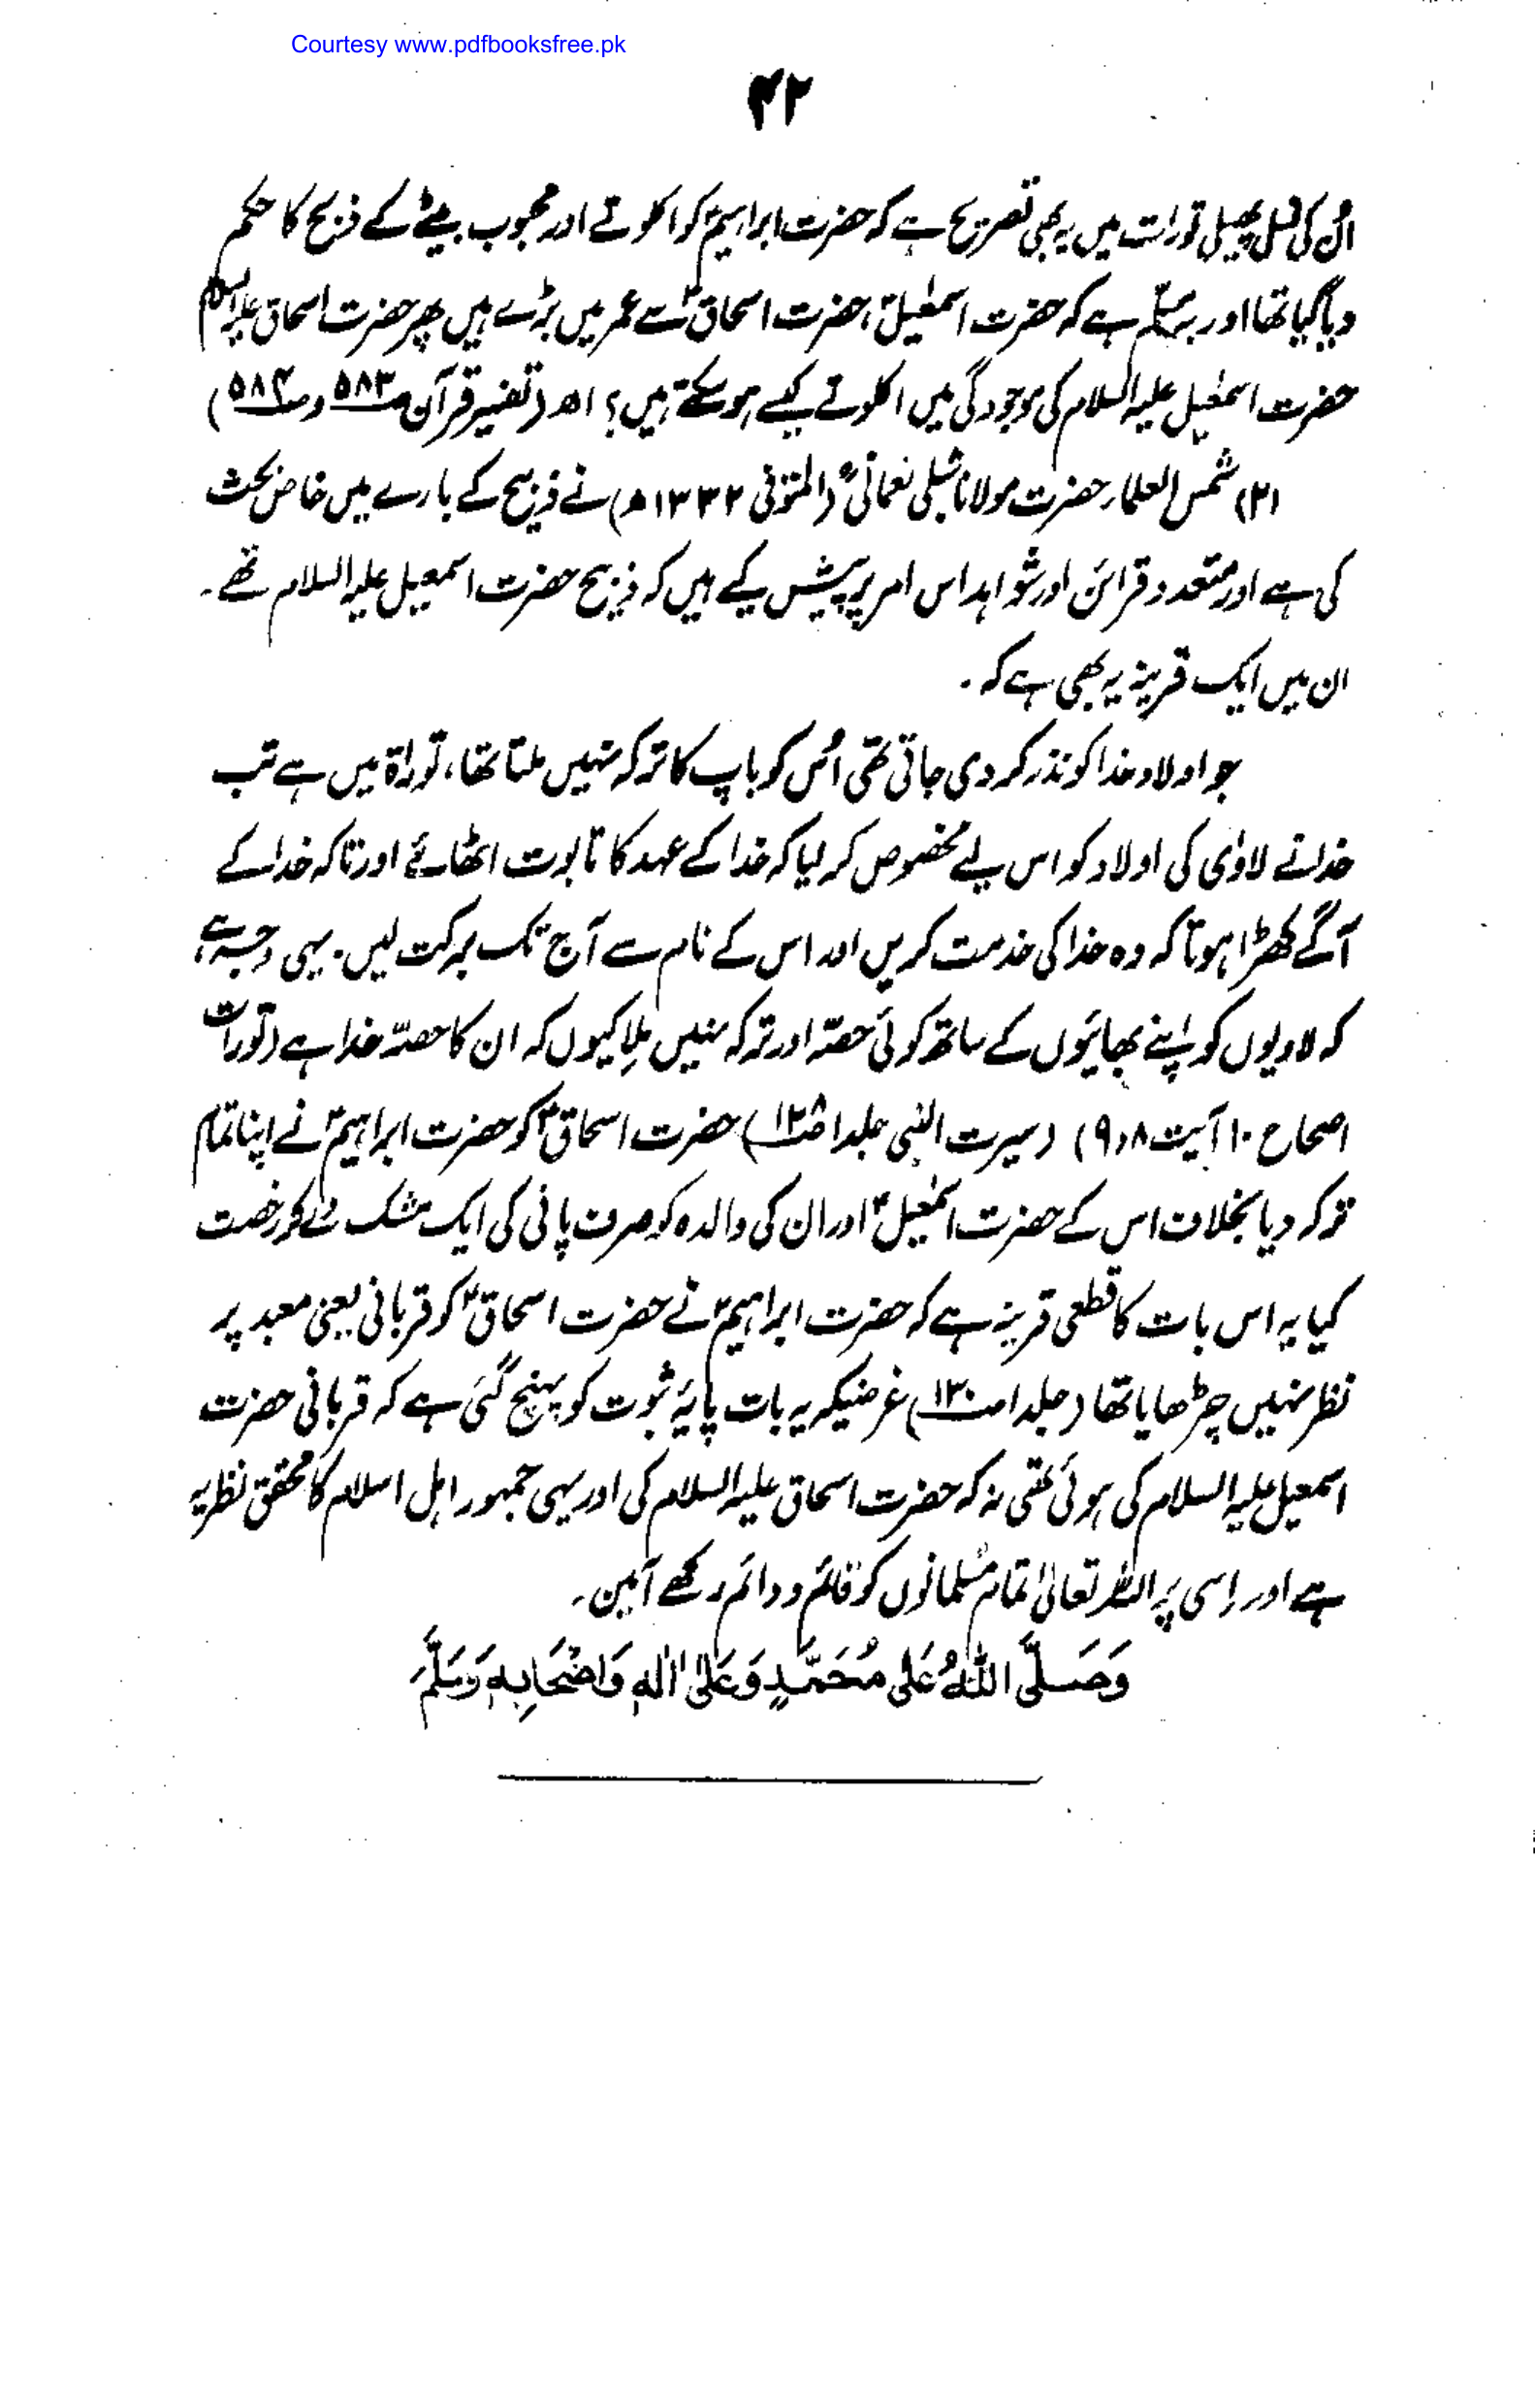 Courtesy www.pdfbooksfree.pk
۴۲
اُن کی نسل پھیلی تورات میں یہ بھی تصریح ہے کہ حضرت ابراہیمؑ کو اکلوتے اور محبوب بیٹے کے ذبح کا حکم
دیا گیا تھا اور یہ مسلّم ہے کہ حضرت اسمٰعیلؑ، حضرت اسحاقؑ سے عمر میں بڑے ہیں پھر حضرت اسحاق علیہ السلام
حضرت اسمٰعیل علیہ السلام کی موجودگی میں اکلوتے کیسے ہو سکتے ہیں؟ اھ (تفسیر قرآن ص۵۸۳ و ص۵۸۴)
(۳) شمس العلماء حضرت مولانا شبلی نعمانیؒ (المتوفی ۱۳۳۲ھ) نے ذبیح کے بارے میں خاص بحث
کی ہے اور متعدد قرائن اور شواہد اس امر پر پیش کیے ہیں کہ ذبیح حضرت اسمعیل علیہ السلام تھے۔
ان میں ایک قرینہ یہ بھی ہے کہ۔
جو اولاد خدا کو نذر کر دی جاتی تھی اُس کو باپ کا ترکہ نہیں ملتا تھا، توراۃ میں ہے تب
خدا نے لاوٰی کی اولاد کو اس لیے مخصوص کر لیا کہ خدا کے عہد کا تابوت اٹھائے اور تاکہ خدا کے
آگے کھڑا ہو تاکہ وہ خدا کی خدمت کریں اور اس کے نام سے آج تک برکت لیں۔ یہی وجہ ہے،
کہ لاویوں کو اپنے بھائیوں کے ساتھ کوئی حصّہ اور ترکہ نہیں مِلا کیوں کہ ان کا حصّہ خدا ہے (تورات
اصحاح ۱۰ آیت ۸، ۹) (سیرت النبی جلد ا ص۱۲۸) حضرت اسحاقؑ کو حضرت ابراہیمؑ نے اپنا تمام
ترکہ دیا بخلاف اس کے حضرت اسمٰعیلؑ اور ان کی والدہ کو صرف پانی کی ایک مشک دے کر رخصت
کیا یہ اس بات کا قطعی قرینہ ہے کہ حضرت ابراہیمؑ نے حضرت اسحاقؑ کو قربانی یعنی معبد پر
نظر نہیں چڑھایا تھا (جلد ا ص۱۳۰) غرضیکہ یہ بات پایۂ ثبوت کو پہنچ گئی ہے کہ قربانی حضرت
اسمعیل علیہ السلام کی ہوئی تھی نہ کہ حضرت اسحاق علیہ السلام کی اور یہی جمہور اہل اسلام کا محقق نظریہ
ہے اور اِسی پر اللہ تعالیٰ تمام مسلمانوں کو قائم و دائم رکھے آمین۔
وَصَلَّی اللّٰہُ عَلٰی مُحَمَّدٍ وَعَلٰی اٰلِہٖ وَاَصْحَابِہٖ وَسَلَّمَ